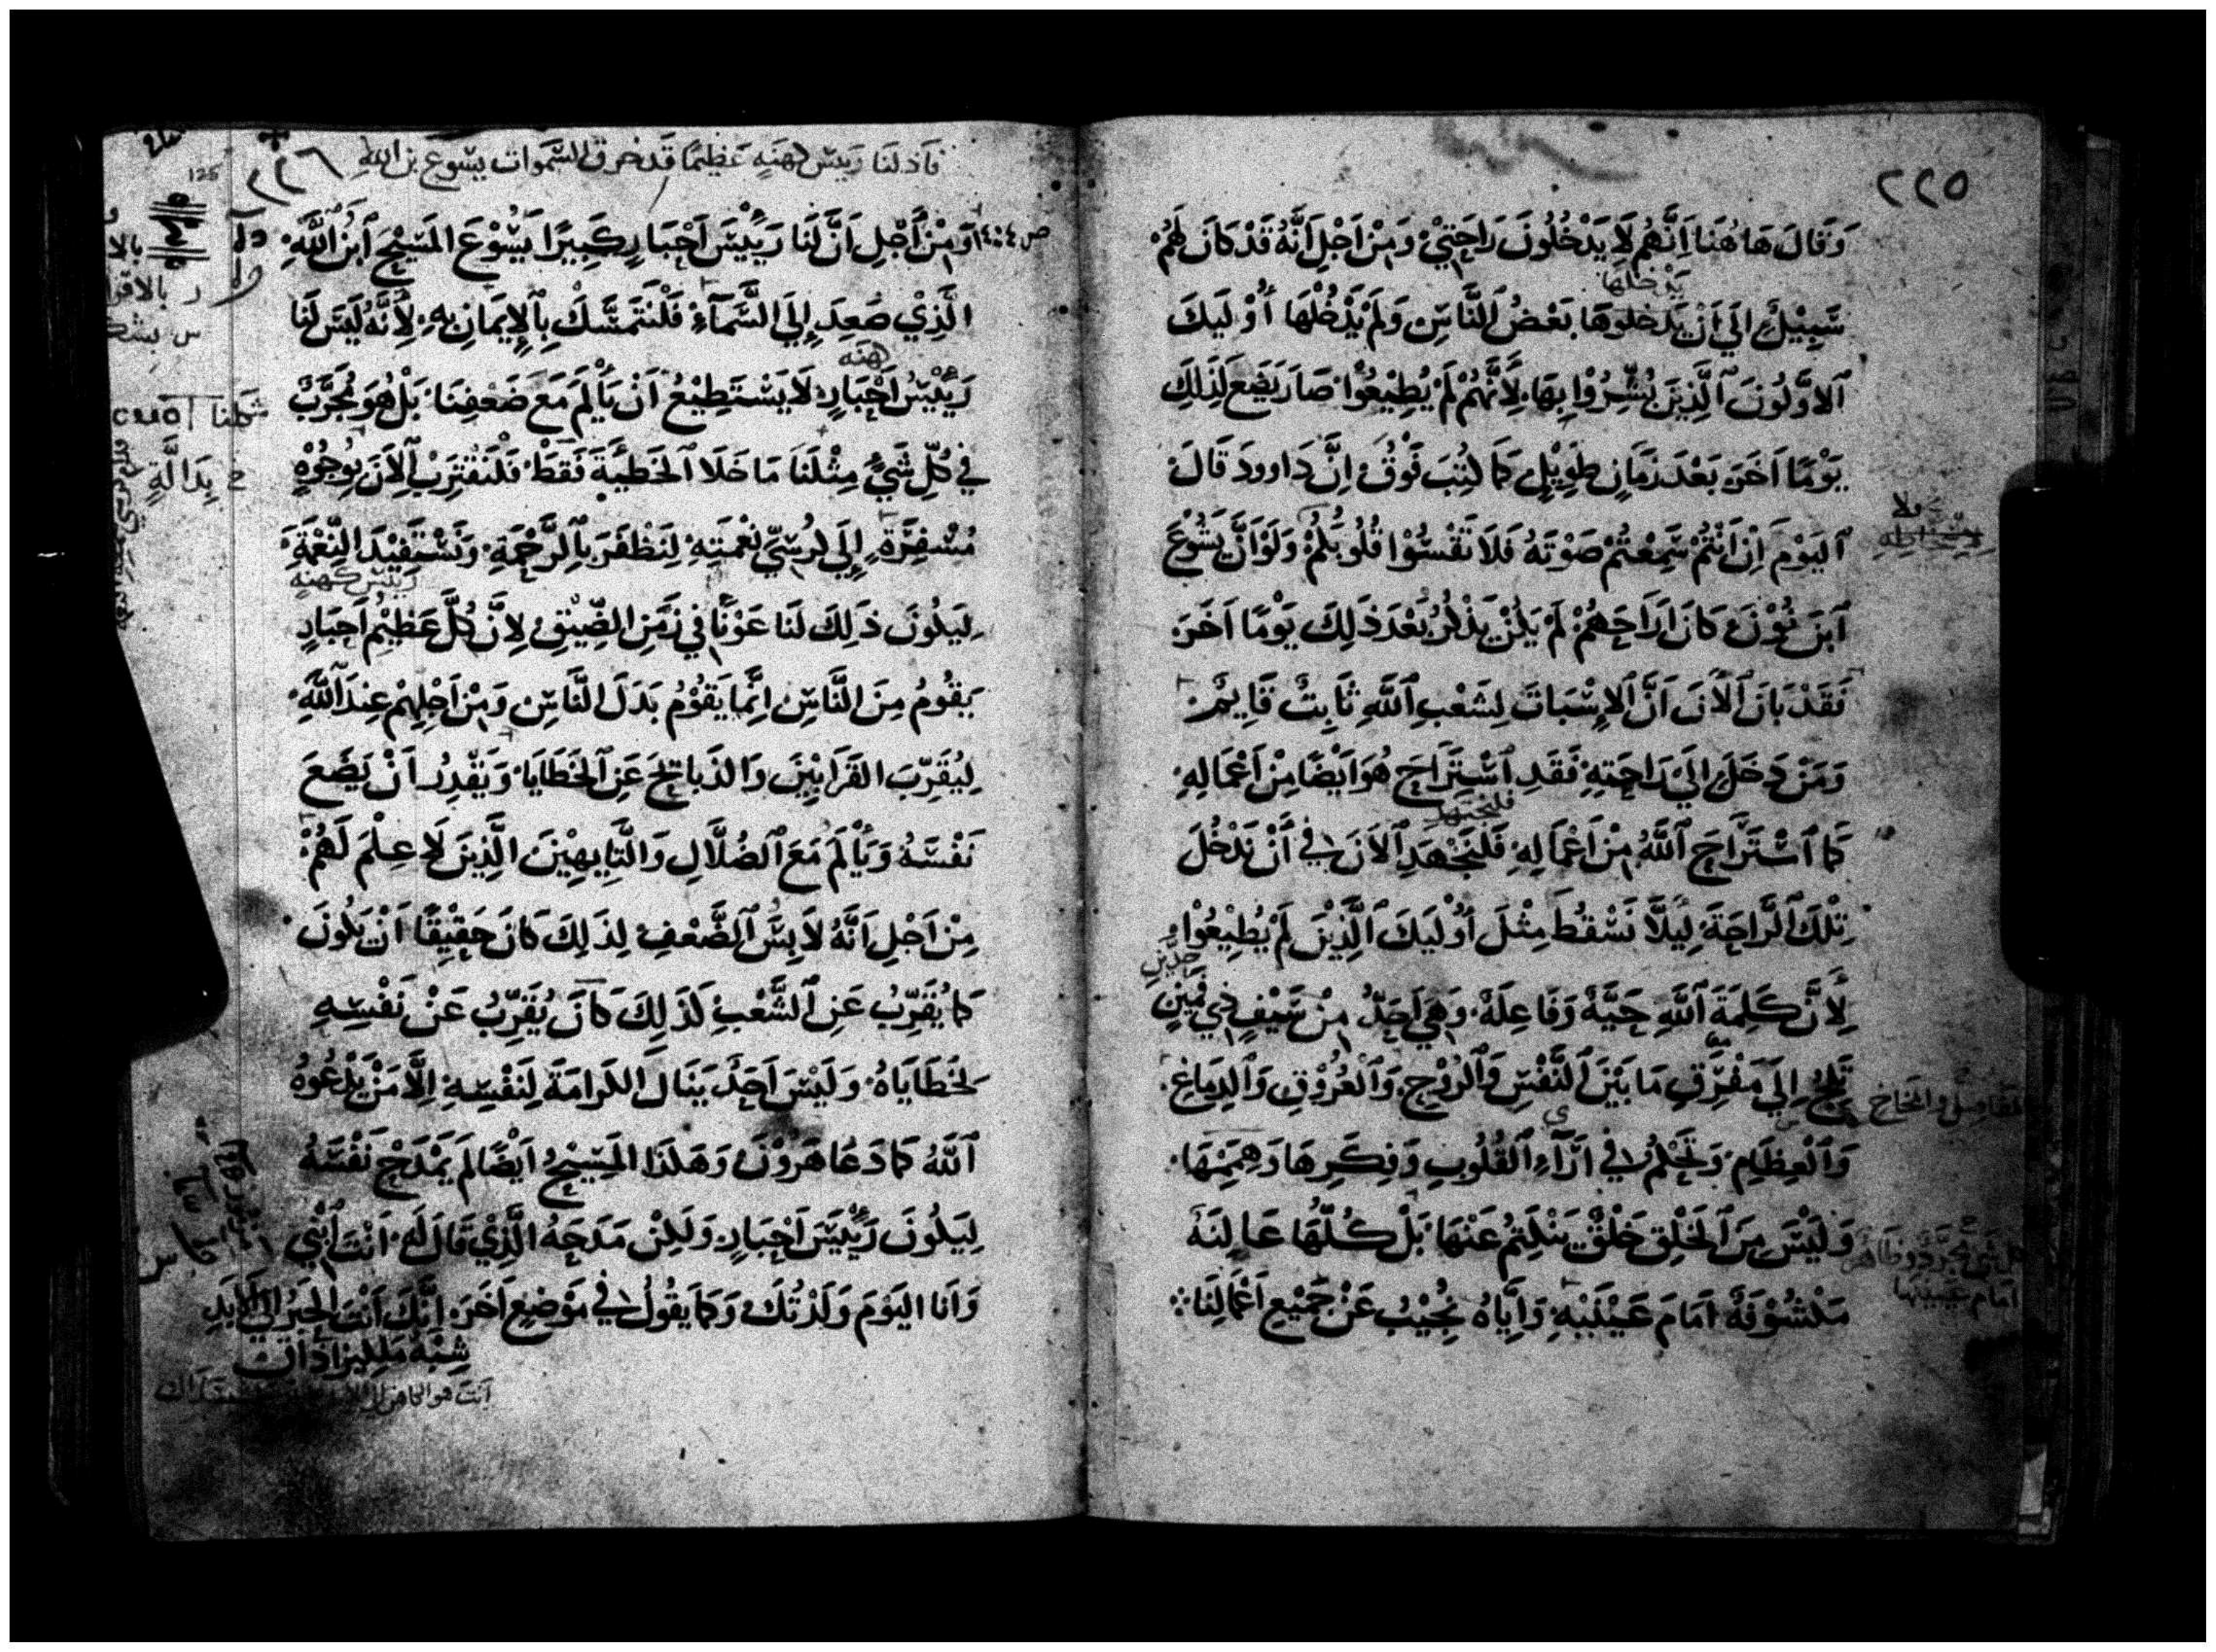 ٢٢٥
وَقَالَ هَا هُنَا اِنَّهُم لَا يَدْخُلُونَ رَاحَتِيْ وَمِنْ اَجْلِ اَنَّهُ قَدْ كَانَ لَهُمْ
يَدْخُلَهَا
سَبِيْلٌ اِلَي اَنْ يَدْخُلُوهَا بَعْضُ النَّاسِ وَلَمْ يَدْخُلْهَا أُوْلَيكَ
اَلاَوَّلُونَ اَلَّذِينَ بُشِّرُوا بِهَا لِأَنَّهُمْ لَمْ يُطِيْعُوْا صَارَ يَضَع لِذَلِكَ
يَوْمًا اَخَرَ بَعْدَ زَمَانٍ طَوِيْلٍ كَمَا كُتِبَ فَوْقُ اِنَّ دَاوودَ قَالَ
اَليَوْمَ اِنْ اَنْتُمْ سَمِعْتُمْ صَوْتَهُ فَلَا تَقْسُوْا قُلُوبُكُمْ وَلَوْ اَنَّ يَشُوْعَ
اَبنَ نُوْنَ كَانَ اَرَاحَهُمْ لَمْ يَكُنْ يَذْكُرُ بَعْدَ ذَلِكَ يَوْمًا اَخَرَ
فَقَدْ بَانَ اَلْأَنَ اَنَّ اَلاِسْبَاتَ لِشَعْبِ اَللَّهِ ثَابِتٌ قَايِمٌ
وَمَنْ دَخَلَ اِلَيْ رَاحَتِهِ فَقَدِ اَسْتَرَاحَ هُوَ اَيْضًا مِنْ اَعْمَالِهِ
فلنجتهد
كَمَا اَسْتَرَاحَ اَللَّهُ مِنْ اَعْمَالِهِ فَلْنَجْهَدِ اَلاَنَ فِي اَنْ نَدْخُلَ
تِلْكَ اَلرَّاحَةَ لِيَلَّا نَسْقُطَ مِثْلَ أُوْلَيكَ اَلَّذِيْنَ لَمْ يُطِيْعُوْا
لِأَنَّ كَلِمَةَ اَللَّهِ حَيَّةٌ وَفَاعِلَةٌ وَهِيَ اَحَدُّ مِنْ سَيْفٍ ذِي فَمَيْنِ
تَلِجُ اِلَى مَفْرَقِ مَا بَيْنَ اَلنَّفْسِ وَاَلرُوْحِ وَاَلْعُرُوْقِ وَاَلدِمَاغِ
وَاَلْعِظَامِ وَتَحْكُمُ فِي اَرَآءِ اَلْقُلُوبِ وَفِكَرِهَا وَهِمَمِهَا
وَلَيْسَ مِنَ اَلْخَلْقِ خَلْقٌ يَنْكَتِمُ عَنْهَا بَلْ كُلُّهَا عَالِنَةٌ
مَكْشُوْفَةٌ اَمَامَ عَيْنَيْهِ وَاِيَّاهُ نُجِيْبُ عَنْ جَمِيْعِ اَعْمَالِنَا
المفاصل والمخاخ
امام عينيها
٢٢٦
فَاذ لنَا رَييسَ كهنَهٍ عَظيمًا قَد خرق السَّموات يسُوعَ بن اللهِ
ص ٤:١٤ وَمِنْ أَجْلِ اَنَّ لَنَا رَيِّيْسَ اَحْبَارٍ كَبِيرًا يَسُوْعَ المَسِيْحَ اَبنُ اللَّهِ
الَّذِي صَعِدَ اِلَى السَّمَآءِ فَلْنَتَمَسَّكْ بِاَلاِيمَانِ بِهِ لِأَنَّهُ لَيسَ لَنَا
كهنَه
رَيِّيْسُ اَحْبَارٍ لَا يَسْتَطِيْعُ اَنْ يَأْلَمَ مَعَ ضَعْفِنَا بَلْ هُوَ مُجَرَّبٌ
فِي كُلِّ شَيٍ مِثْلَنَا مَا خَلَا اَلخَطِيَّةَ فَقَطْ فَلْنَقْتَرِبْ اَلاَنَ بِوُجُوْهٍ
مُسْفِرَةٍ اِلَي كُرْسِيّ نِعْمَتِهِ لِنَظْفَرَ بِاَلرَّحْمَةِ وَنَسْتَفِيْدَ النِّعْمَةَ
رَييسَ كهنهٍ
لِيَكُونَ ذَلِكَ لَنَا عَوْنًا فِي زَمَنِ الضِّيْقِ لِاَنَّ كُلَّ عَظِيْمِ اَحْبَارٍ
يَقُومُ مِنَ النَّاسِ اِنَّمَا يَقُوْمُ بَدَلَ النَّاسِ وَمِنْ اَجْلِهِمْ عِنْدَ اَللَّهِ
لِيُقَرِّبَ القَرَابِيْنَ وَالذَبَائِحَ عَنِ اَلْخَطَايَا وَيَقْدِرُ اَنْ يَضَعَ
نَفْسَهُ وَيَأْلَمَ مَعَ اَلضُلَّالِ وَالتَّايِهِيْنَ الَّذِينَ لَا عِلْمَ لَهُمْ
مِنْ اَجْلِ اَنَّهُ لَابِسُ اَلضَّعْفِ لِذَلِكَ كَانَ حَقِيْقًا اَنْ يَكُونَ
كَمَا يُقَرِّبُ عَنِ اَلشَّعْبِ كَذَلِكَ كَانَ يُقَرِّبُ عَنْ نَفْسِهِ
لِخَطَايَاهُ وَلَيْسَ اَحَدٌ يَنَالَ الكَرَامَةَ لِنَفْسِهِ اِلَّا مَنْ يَدْعُوهُ
اَللَّهُ كَمَا دَعَا هَرُوْنَ وَهَكَذَا المَسِيْحُ اَيْضًا لَمْ يَمْدَحْ نَفْسَهُ
لِيَكُونَ رَيِّيْسَ اَحْبَارٍ وَلَكِنْ مَدَحَهُ الَّذِيْ قَالَ لَهُ اَنْتَ اَبْنِي
وَاَنا اليَوْمَ وَلَدْتُكَ وَكَمَا يَقُولُ فِي مَوْضِعٍ اَخَرَ اِنَّكَ اَنْتَ الحَبْرُ اِلَي الاَبَدِ
شِبْهُ مَلكيزاداق
اَنتَ هو الكاهن
125
شكلنا
بِدَالَّةٍ